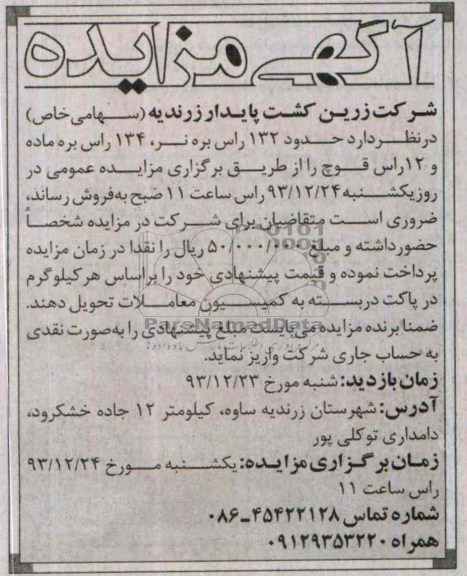 آگهی مزایده
شرکت زرین کشت پایدار زرندیه (سهامی خاص)
درنظر دارد حدود ۱۳۲ راس بره نر، ۱۳۴ راس بره ماده
و ۱۲راس قوچ را از طریق برگزاری مزایده عمومی در
روز یکشنبه ۹۳/۱۲/۲۴ راس ساعت ۱۱ صبح به‌فروش رساند،
ضروری است متقاضیان برای شرکت در مزایده شخصاً
حضور داشته و مبلغ ۵۰/۰۰۰/۰۰۰ ریال را نقدا در زمان مزایده
پرداخت نموده و قیمت پیشنهادی خود را براساس هر کیلوگرم
در پاکت دربسته به کمیسیون معاملات تحویل دهند.
ضمنا برنده مزایده می‌بایست مبلغ پیشنهادی را به‌صورت نقدی
به حساب جاری شرکت واریز نماید.
زمان بازدید: شنبه مورخ ۹۳/۱۲/۲۳
آدرس: شهرستان زرندیه ساوه، کیلومتر ۱۲ جاده خشکرود،
دامداری توکلی پور
زمان برگزاری مزایده: یکشنبه مورخ ۹۳/۱۲/۲۴
راس ساعت ۱۱
شماره تماس ۴۵۴۲۲۱۲۸-۰۸۶
همراه ۰۹۱۲۹۳۵۳۲۲۰
ParsNamadData